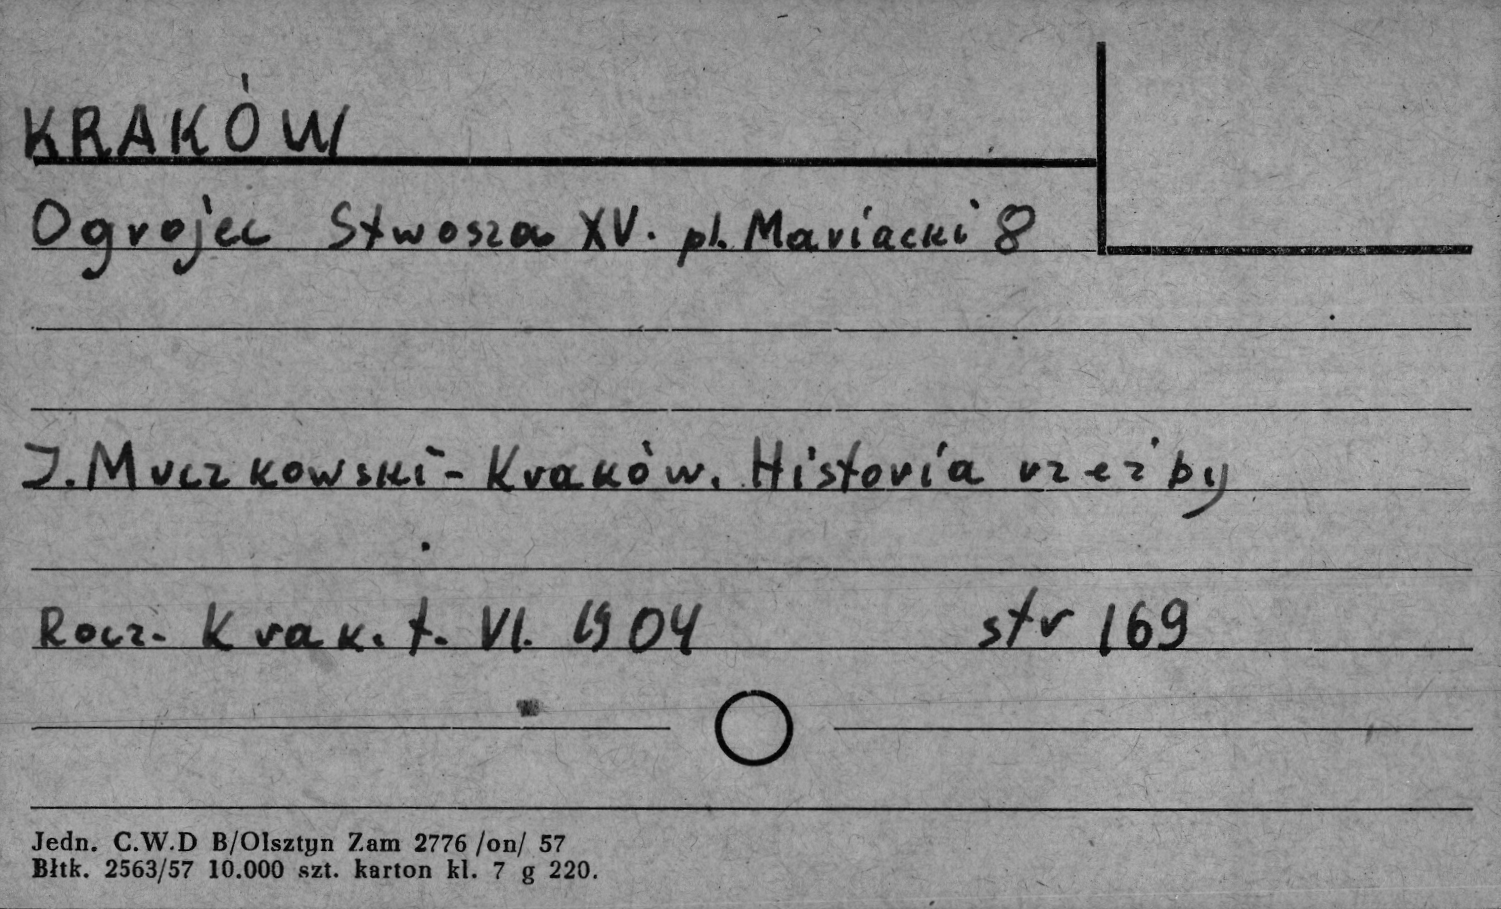 KRAKÓW
Ogrojec Stwosza XV. pl. Mariacki 8
J. Muczkowski - Kraków. Historia rzeźby
Rocz. Krak. t. VI. 1904 str 169
Jedn. C.W.D B/Olsztyn Zam 2776 /on/ 57
Błtk. 2563/57 10.000 szt. karton kl. 7 g 220.